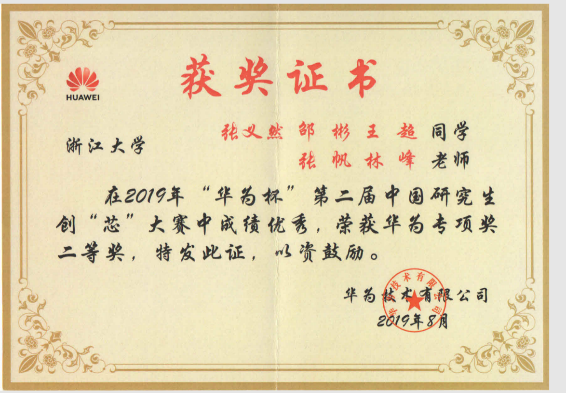 获奖证书
HUAWEI
浙江大学 张义然 邵彬 王超 同学
张帆 林峰 老师
在2019年“华为杯”第二届中国研究生
创“芯”大赛中成绩优秀，荣获华为专项奖
二等奖，特发此证，以资鼓励。
华为技术有限公司
2019年8月